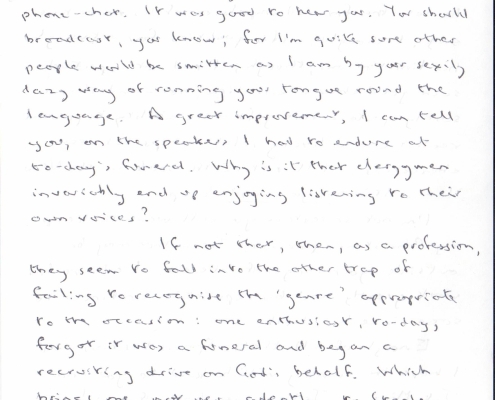 phone-chat. It was good to hear you. You should
broadcast, you know; for I'm quite sure other
people would be smitten as I am by your sexily
lazy way of running your tongue round the
language. A great improvement, I can tell
you, on the speakers I had to endure at
to-day's funeral. Why is it that clergymen
invariably end up enjoying listening to their
own voices?
If not that, then, as a profession,
they seem to fall into the other trap of
failing to recognise the 'genre' appropriate
to the occasion: one enthusiast, to-day,
forgot it was a funeral and began a
recruiting drive on God's behalf. Which
brings me, not